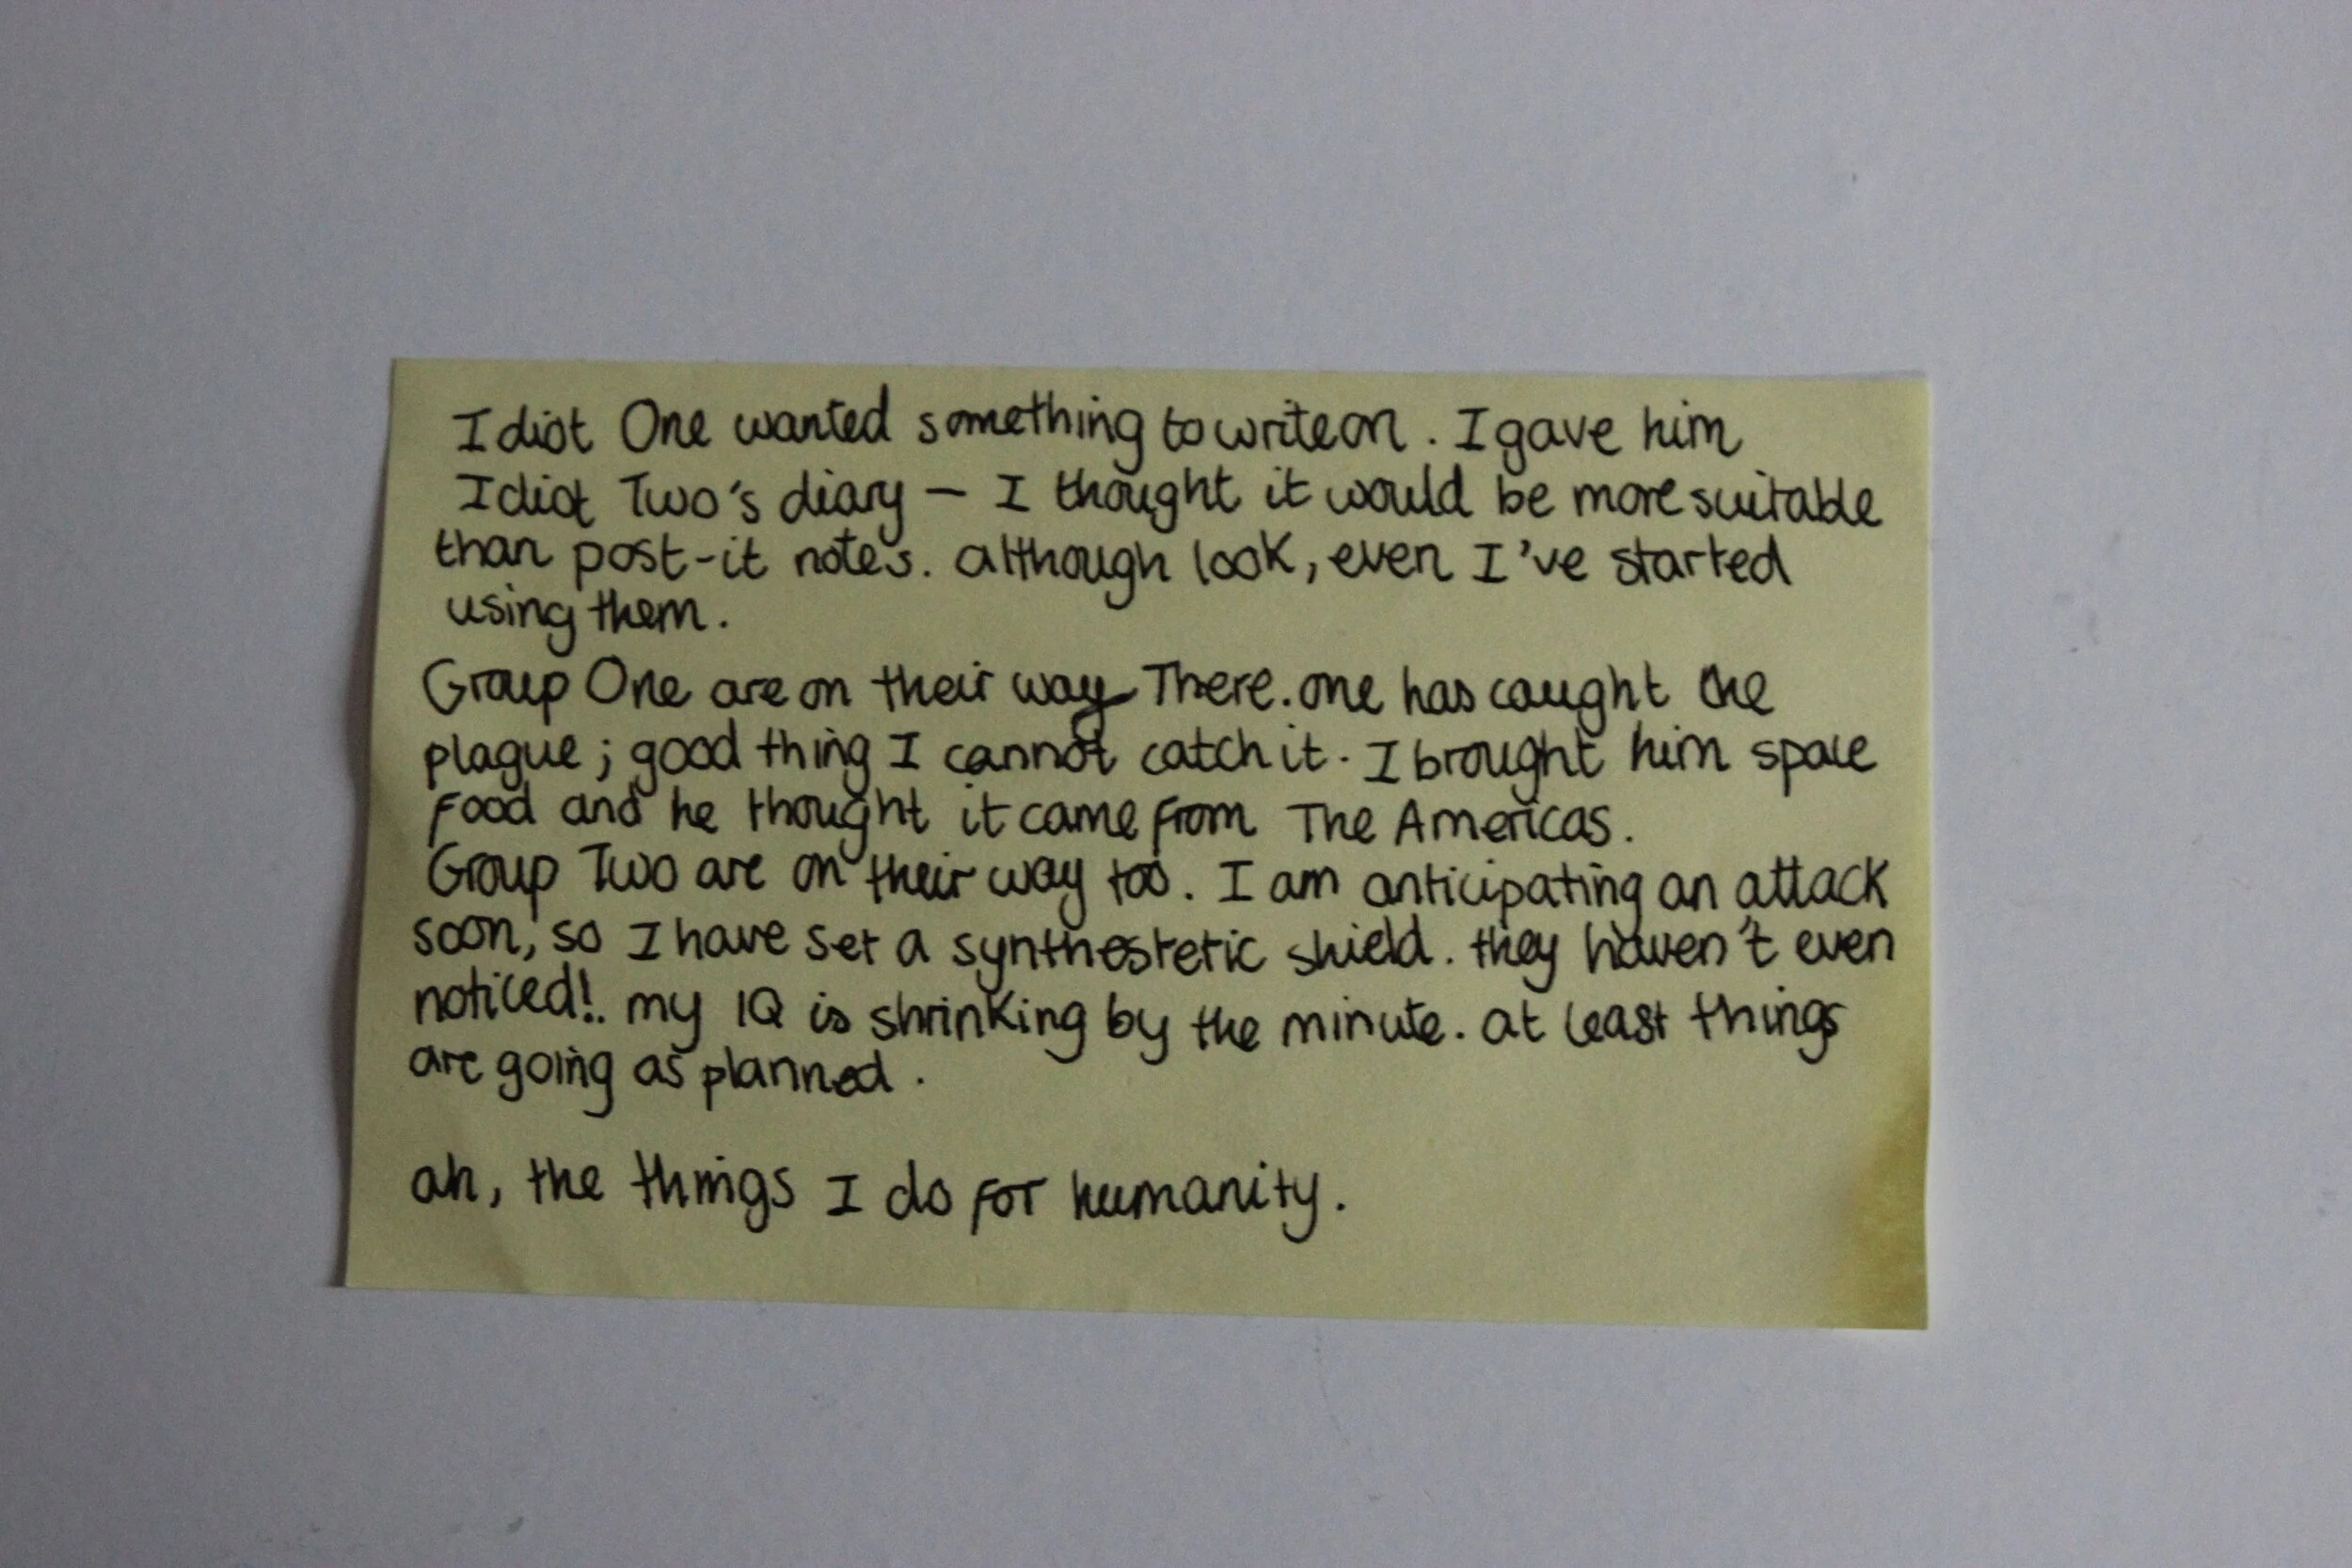 Idiot One wanted something to write on. I gave him
Idiot Two's diary – I thought it would be more suitable
than post-it notes. although look, even I've started
using them.
Group One are on their way There. one has caught the
plague; good thing I cannot catch it. I brought him space
food and he thought it came from The Americas.
Group Two are on their way too. I am anticipating an attack
soon, so I have set a synthestetic shield. they haven't even
noticed!. my IQ is shrinking by the minute. at least things
are going as planned.
ah, the things I do for humanity.